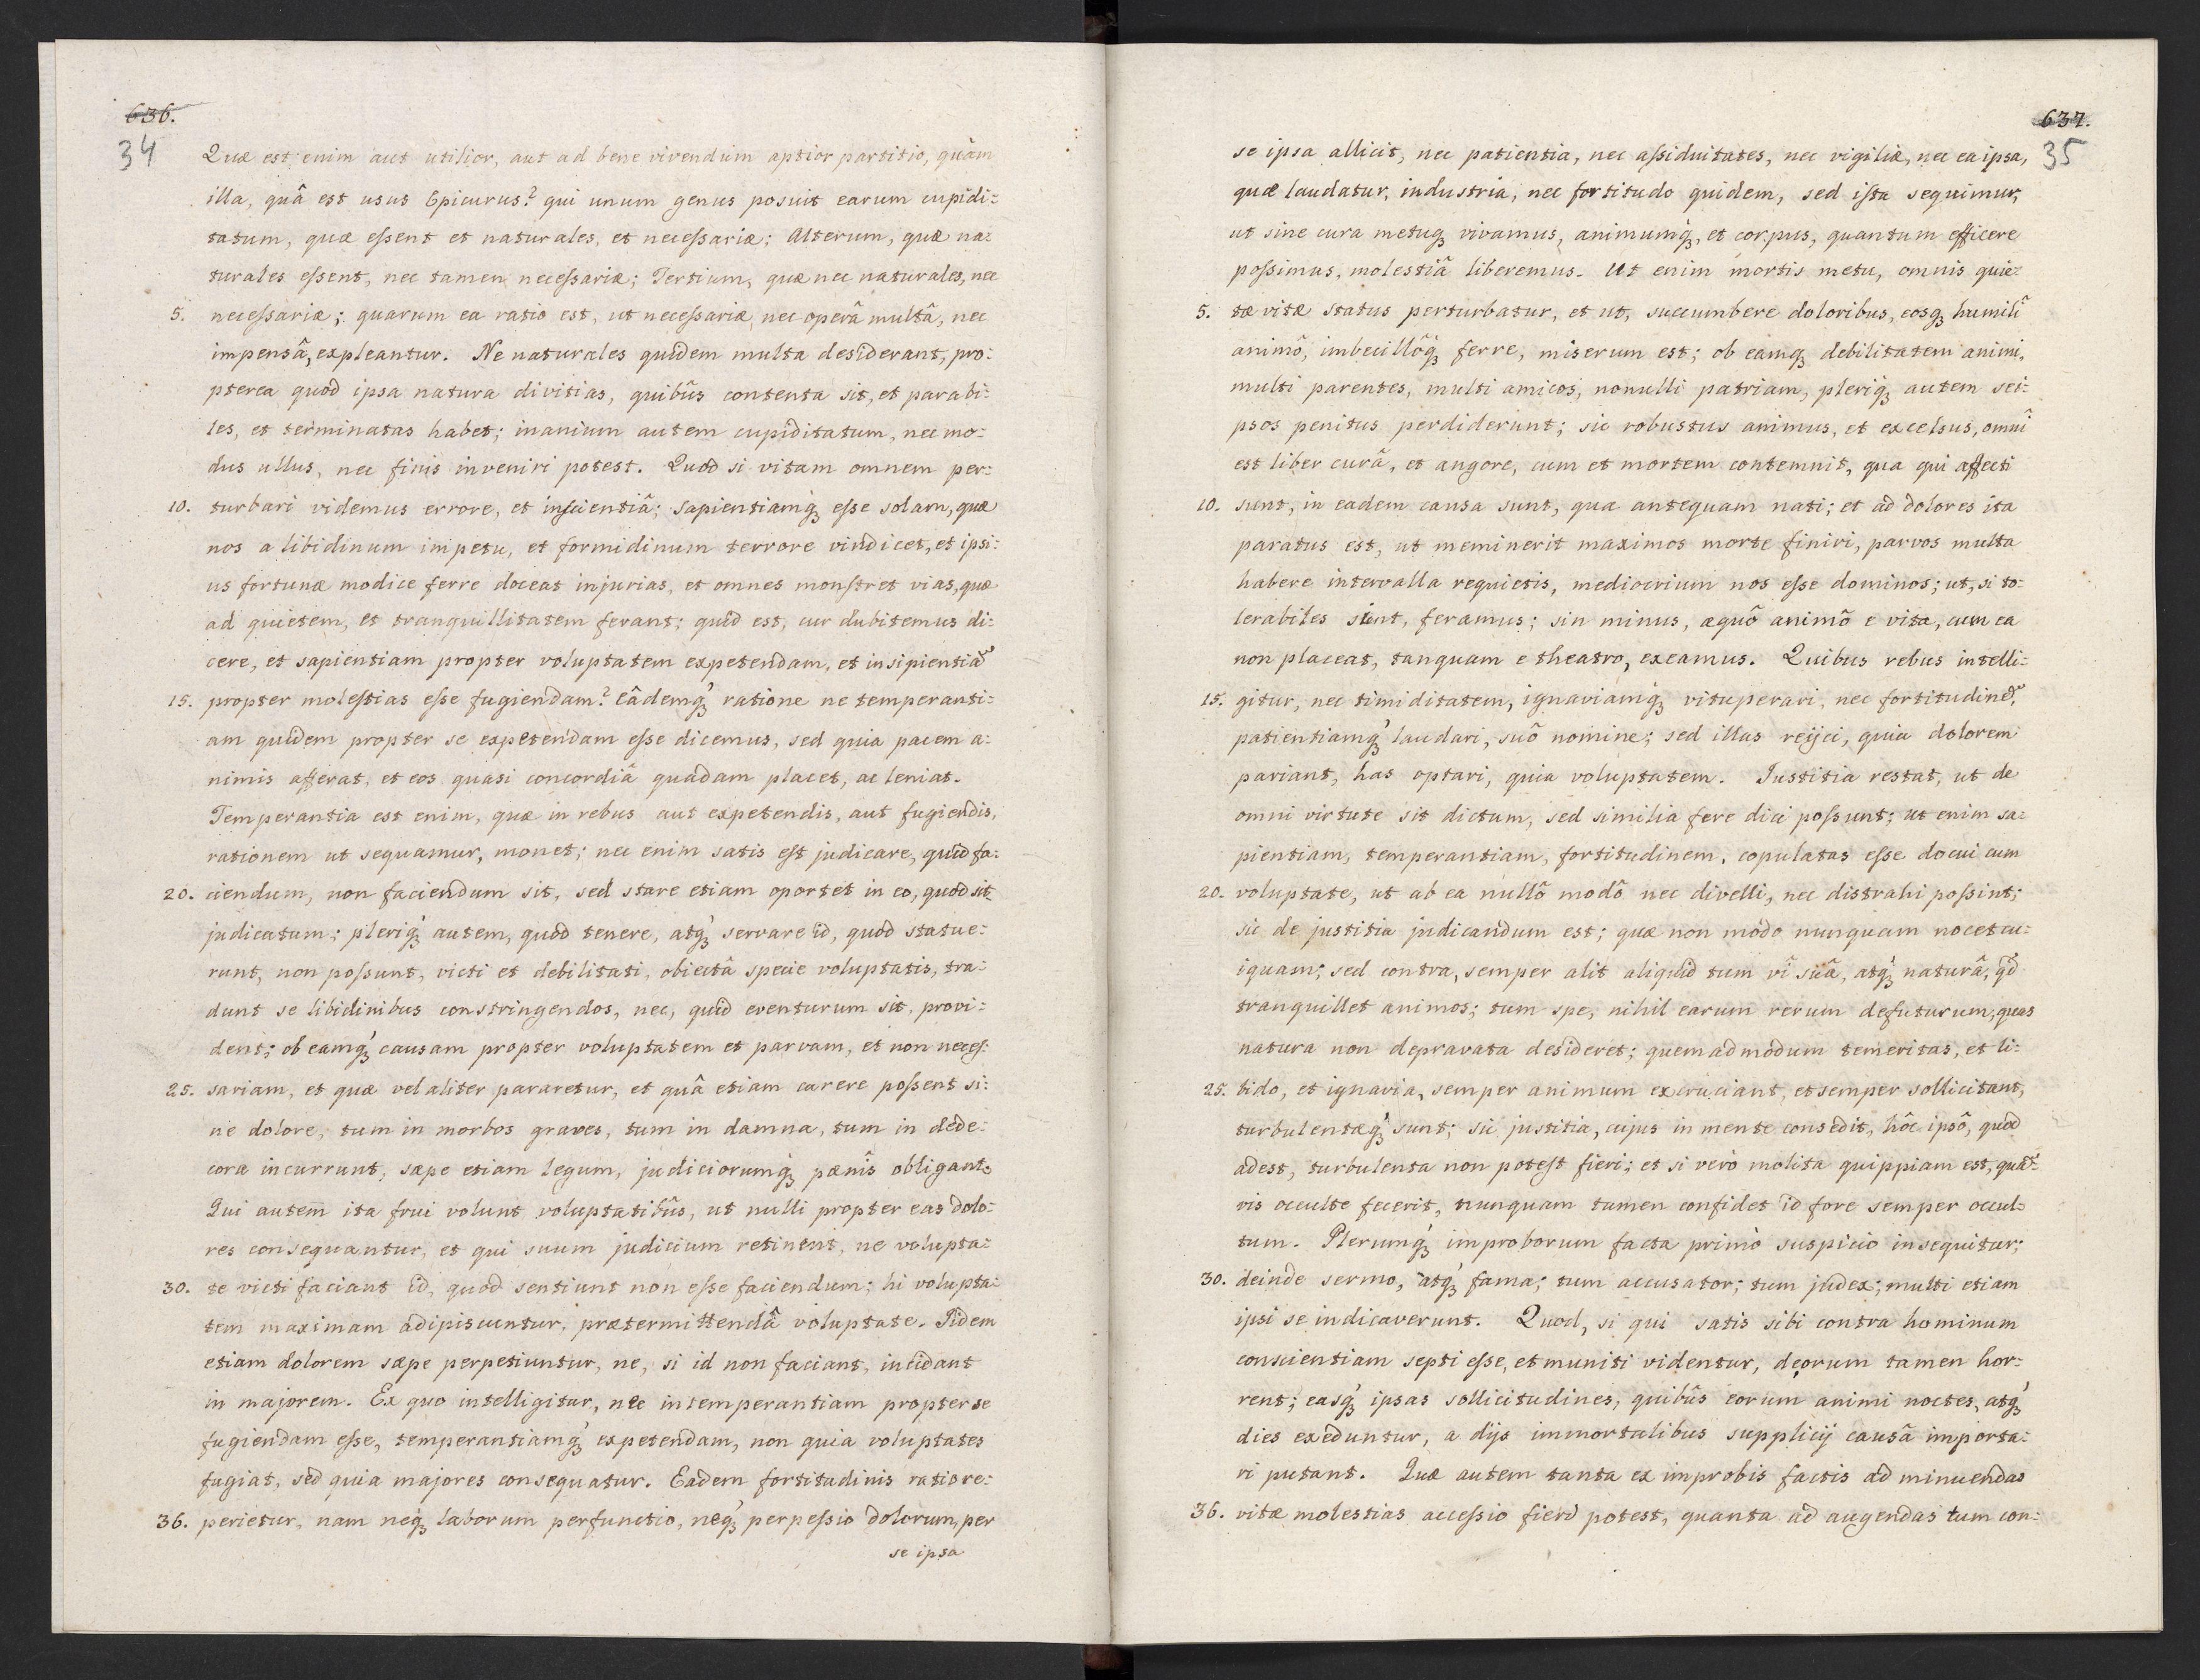 636.
34
Quæ est enim aut utilior, aut ad bene vivendum aptior partitio, quàm
illa, quâ est usus Epicurus? qui unum genus posuit earum cupidi:
tatum, quæ eſsent et naturales, et neceſsariæ; Alterum, quæ na:
turales eſsent, nec tamen neceſsariæ; Tertium, quæ nec naturales, nec
5. neceſsariæ; quarum ea ratio est, ut neceſsariæ, nec operâ multâ, nec
impensâ, expleantur. Ne naturales quidem multa desiderant, pro:
pterea quod ipsa natura divitias, quibûs contenta sit, et parabi:
les, et terminatas habet; inanium autem cupiditatum, nec mo:
dus ullus, nec finis inveniri potest. Quod si vitam omnem per:
10. turbari videmus errore, et inscientiâ; sapientiamq́ꝫ eſse solam, quæ
nos a libidinum impetu, et formidinum terrore vindicet, et ipsi:
us fortunæ modice ferre doceat injurias, et omnes monſtret vias, quæ
ad quietem, et tranquillitatem ferant; quid est, cur dubitemus di:
cere, et sapientiam propter voluptatem expetendam, et insipientiā
15. propter moleſtias eſse fugiendam? Eâdemq́ꝫ ratione ne temperanti:
am quidem propter se expetendam eſse dicemus, sed quia pacem a:
nimis afferat, et eos quasi concordiâ quadam placet, ac leniat.
Temperantia est enim, quæ in rebus aut expetendis, aut fugiendis,
rationem ut sequamur, monet; nec enim satis eſt judicare, quid fa:
20. ciendum, non faciendum sit, sed stare etiam oportet in eo, quod sit
judicatum; pleriq́ꝫ autem, quod tenere, atq́ꝫ servare id, quod statue:
runt, non poſsunt, victi et debilitati, obiectâ specie voluptatis, tra:
dunt se libidinibus constringendos, nec, quid eventurum sit, provi:
dent; ob eamq́ꝫ causam propter voluptatem et parvam, et non neceſ:
25. sariam, et quæ vel aliter pararetur, et quâ etiam carere poſsent si:
ne dolore, tum in morbos graves, tum in damna, tum in dede:
cora incurrunt, sæpe etiam legum, judiciorumq́ꝫ pænîs obligant.
Qui autem ita frui volunt voluptatibûs, ut nulli propter eas dolo:
res consequantur, et qui suum judicium retinent, ne volupta:
30. te victi faciant id, quod sentiunt non eſse faciendum; hi volupta:
tem maximam adipiscuntur, prætermittendâ voluptate. Iidem
etiam dolorem sæpe perpetiuntur, ne, si id non faciant, incidant
in majorem. Ex quo intelligitur, nec intemperantiam propter se
fugiendam eſse, temperantiamq́ꝫ expetendam, non quia voluptates
fugiat, sed quia majores consequatur. Eadem fortitudinis ratio re:
36. perietur, nam neq́ꝫ laborum perfunctio, neq́ꝫ perpeſsio dolorum, per
se ipsa
637.
35
se ipsa allicit, nec patientia, nec aſsiduitates, nec vigiliæ, nec ea ipsa,
quæ laudatur, industria, nec fortitudo quidem, sed iſta sequimur,
ut sine cura metuqꝫ vivamus, animumq́ꝫ, et corpus, quantum efficere
poſsimus, molestiâ liberemus. Ut enim mortis metu, omnis quie:
5. tæ vitæ status perturbatur, et ut, succumbere doloribus, eosqꝫ humilî
animô, imbecillôq́ꝫ ferre, miserum est; ob eamqꝫ debilitatem animi,
multi parentes, multi amicos, nonulli patriam, pleriq́ꝫ autem sei:
psos penitus perdiderunt; sic robustus animus, et excelsus, omnî
est liber curâ, et angore, cum et mortem contemnit, qua qui affecti
10. sunt, in eadem causa sunt, qua antequam nati; et ad dolores ita
paratus est, ut meminerit maximos morte finiri, parvos multa
habere intervalla requietis, mediocrium nos eſse dominos; ut, si to:
lerabiles sint, feramus; sin minus, æquô animô e vita, cum ea
non placeat, tanquam e theatro, exeamus. Quibus rebus intelli:
15. gitur, nec timiditatem, ignaviamq́ꝫ vituperari, nec fortitudinē,
patientiamq́ꝫ laudari, suô nomine; sed illas reijci, quia dolorem
pariant, has optari, quia voluptatem. Iustitia restat, ut de
omni virtute sit dictum, sed similia fere dici poſsunt; ut enim sa:
pientiam, temperantiam, fortitudinem, copulatas eſse docui cum
20. voluptate, ut ab ea nullô modô nec divelli, nec distrahi poſsint;
sic de justitia judicandum est; quæ non modo nunquam nocet cu:
iquam; sed contra, semper alit aliquid tum vî suâ, atq́ꝫ naturâ, qđ
tranquillet animos; tum spe, nihil earum rerum defuturum, quas
natura non depravata desideret; quemadmodum temeritas, et li:
25. bido, et ignavia, semper animum excruciant, et semper sollicitant,
turbulentæq́ꝫ sunt; sic justitia, cujus in mente consedit, hôc ipsô, quod
adest, turbulenta non poteſt fieri; et si verò molita quippiam est, quā:
vis occulte fecerit, nunquam tamen confidet id fore semper occul:
tum. Plerumq́ꝫ improborum facta primò suspicio insequitur;
30. deinde sermo, atq́ꝫ fama; tum accusator; tum judex; multi etiam
ipsi se indicaverunt. Quod, si qui satis sibi contra hominum
conscientiam septi eſse, et muniti videntur, deorum tamen hor:
rent; easq́ꝫ ipsas sollicitudines, quibûs eorum animi noctes, atq́ꝫ
dies exeduntur, a dijs immortalibus supplicij causâ importa:
ri putant. Quæ autem tanta ex improbis factis ad minuendas
36. vitæ molestias acceſsio fieri potest, quanta ad augendas tum con: